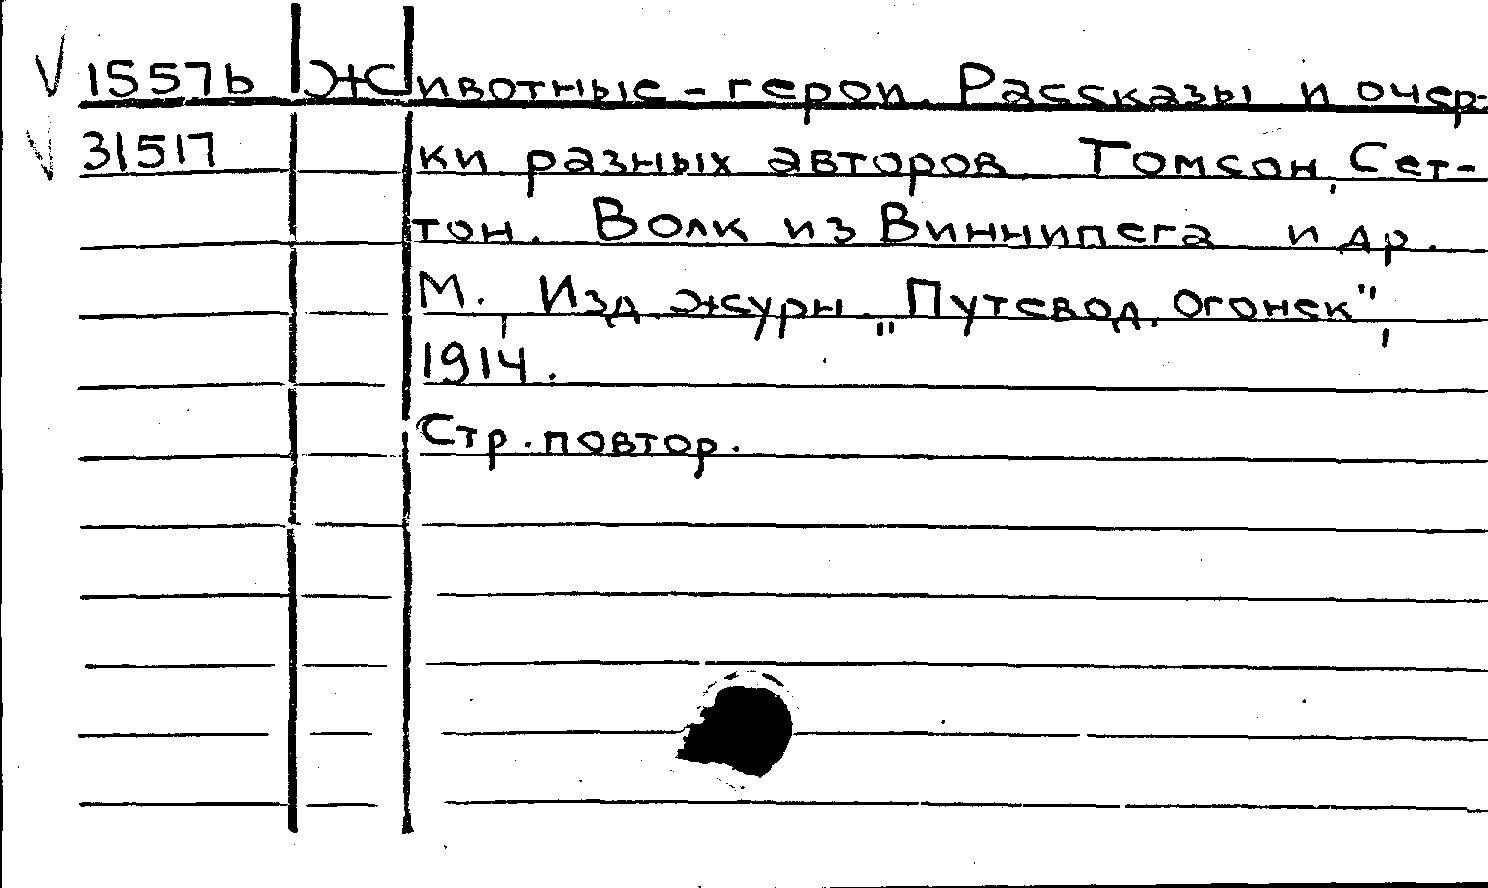 V 1557b Животные - герои. Рассказы и очер-
V 31517 ки разных авторов. Томсон, Сет-
тон. Волк из Виннипега и др.
М., Изд. журн. „Путевод. огонек",
1914.
Стр. повтор.